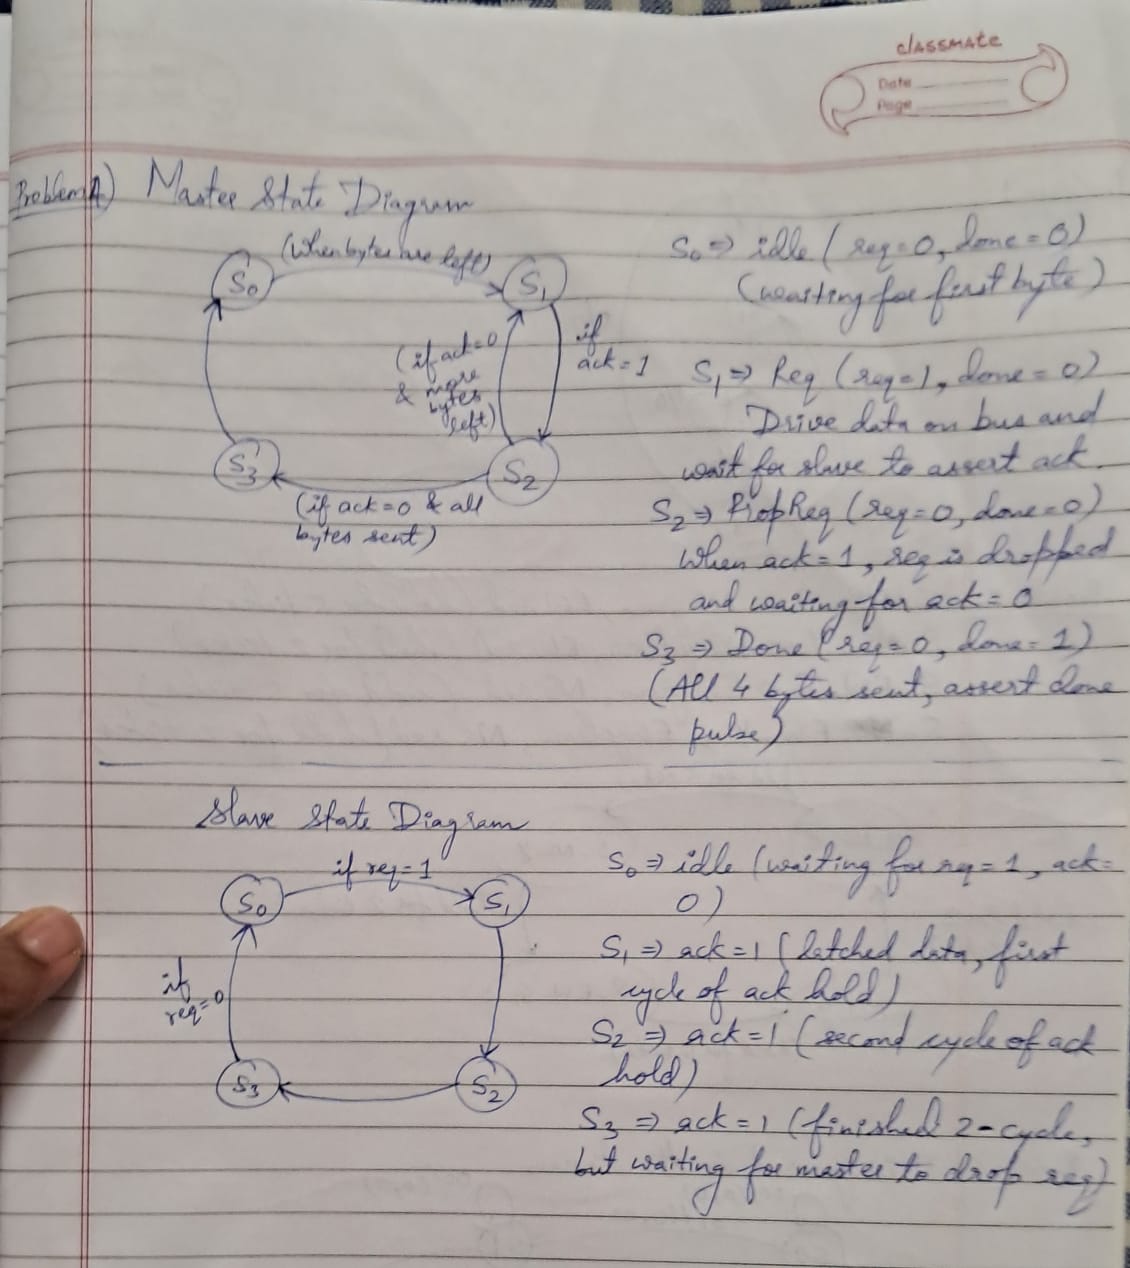 classmate
Date
Page
Problem 4) Master State Diagram
(when bytes are left)
S0
S1
if
ack=1
(if ack=0
& more
bytes
left)
S3
S2
(if ack=0 & all
bytes sent)
S0 => idle (req=0, done=0)
(waiting for first byte)
S1 => Req (req=1, done=0)
Drive data on bus and
wait for slave to assert ack.
S2 => DropReq (req=0, done=0)
When ack=1, req is dropped
and waiting for ack=0
S3 => Done (req=0, done=1)
(All 4 bytes sent, assert done
pulse)
Slave State Diagram
if req=1
S0
S1
if
req=0
S3
S2
S0 => idle (waiting for req=1, ack=
0)
S1 => ack=1 (latched data, first
cycle of ack hold)
S2 => ack=1 (second cycle of ack
hold)
S3 => ack=1 (finished 2-cycle,
but waiting for master to drop req)